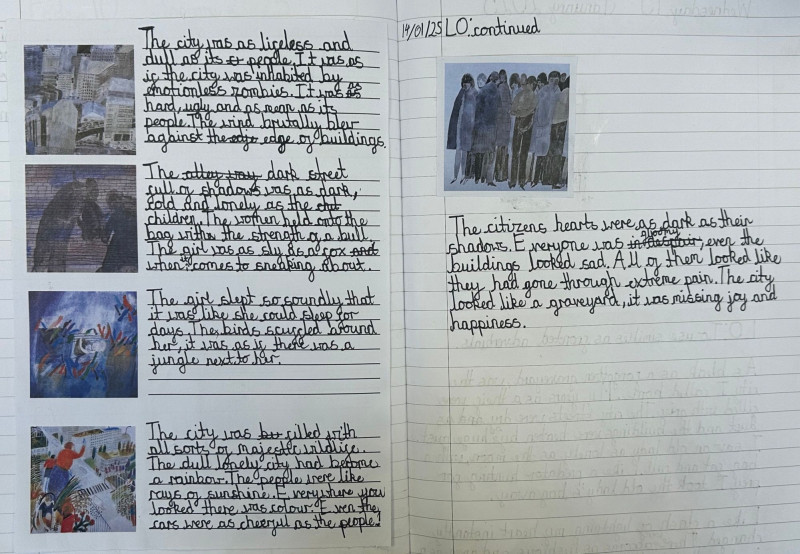 The city was as lifeless and
dull as its st people. It was as
if the city was inhabited by
emotionless zombies. It was as
hard, ugly and as mean as its
people. The wind brutally blew
against the edje edge of buildings.
The alley way dark street
full of shadows was as dark,
cold and lonely as the
children. The women held onto the
bag with the strength of a bull.
The girl was as sly as a fox and
when it comes to sneaking about.
The girl slept so soundly that
it was like she could sleep for
days. The birds scuffled around
her, it was as if there was a
jungle next to her.
The city was filled with
all sorts of majestic wildlife.
The dull lonely city had become
a rainbow. The people were like
rays of sunshine. Everywhere you
looked there was colour. Even the
cars were as cheerful as the people!
14/01/25 LO: continued
The citizens hearts were as dark as their
shadows. Everyone was in despair, gloomy, even the
buildings looked sad. All of them looked like
they had gone through extreme pain. The city
looked like a graveyard, it was missing joy and
happiness.